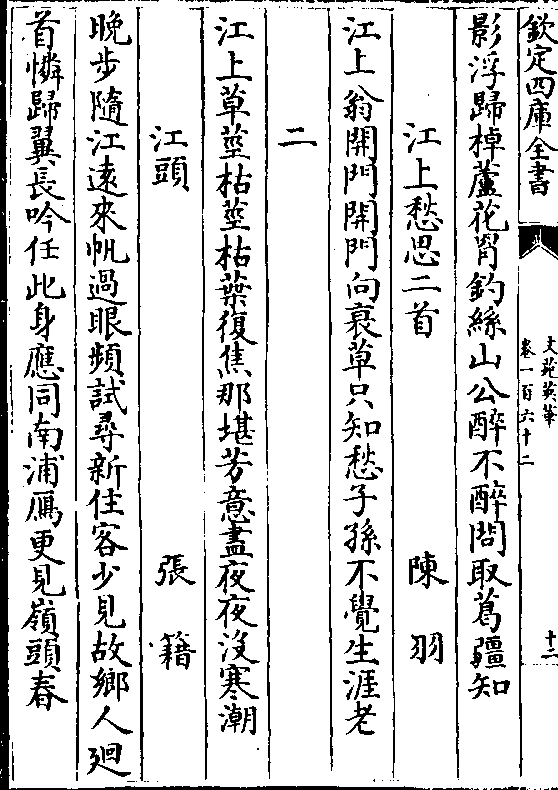 欽定四庫全書
文苑英華
卷一百六十二
十二
影浮歸棹蘆花罥釣絲山公醉不醉問取葛疆知
江上愁思二首 陳羽
江上翁開門開門向衰草只知愁子孫不覺生涯老
二
江上草莖枯莖枯葉復焦那堪芳意盡夜夜沒寒潮
江頭 張籍
晚步隨江遠來帆過眼頻試尋新住客少見故鄉人廻
首憐歸翼長吟任此身應同南浦鴈更見嶺頭春